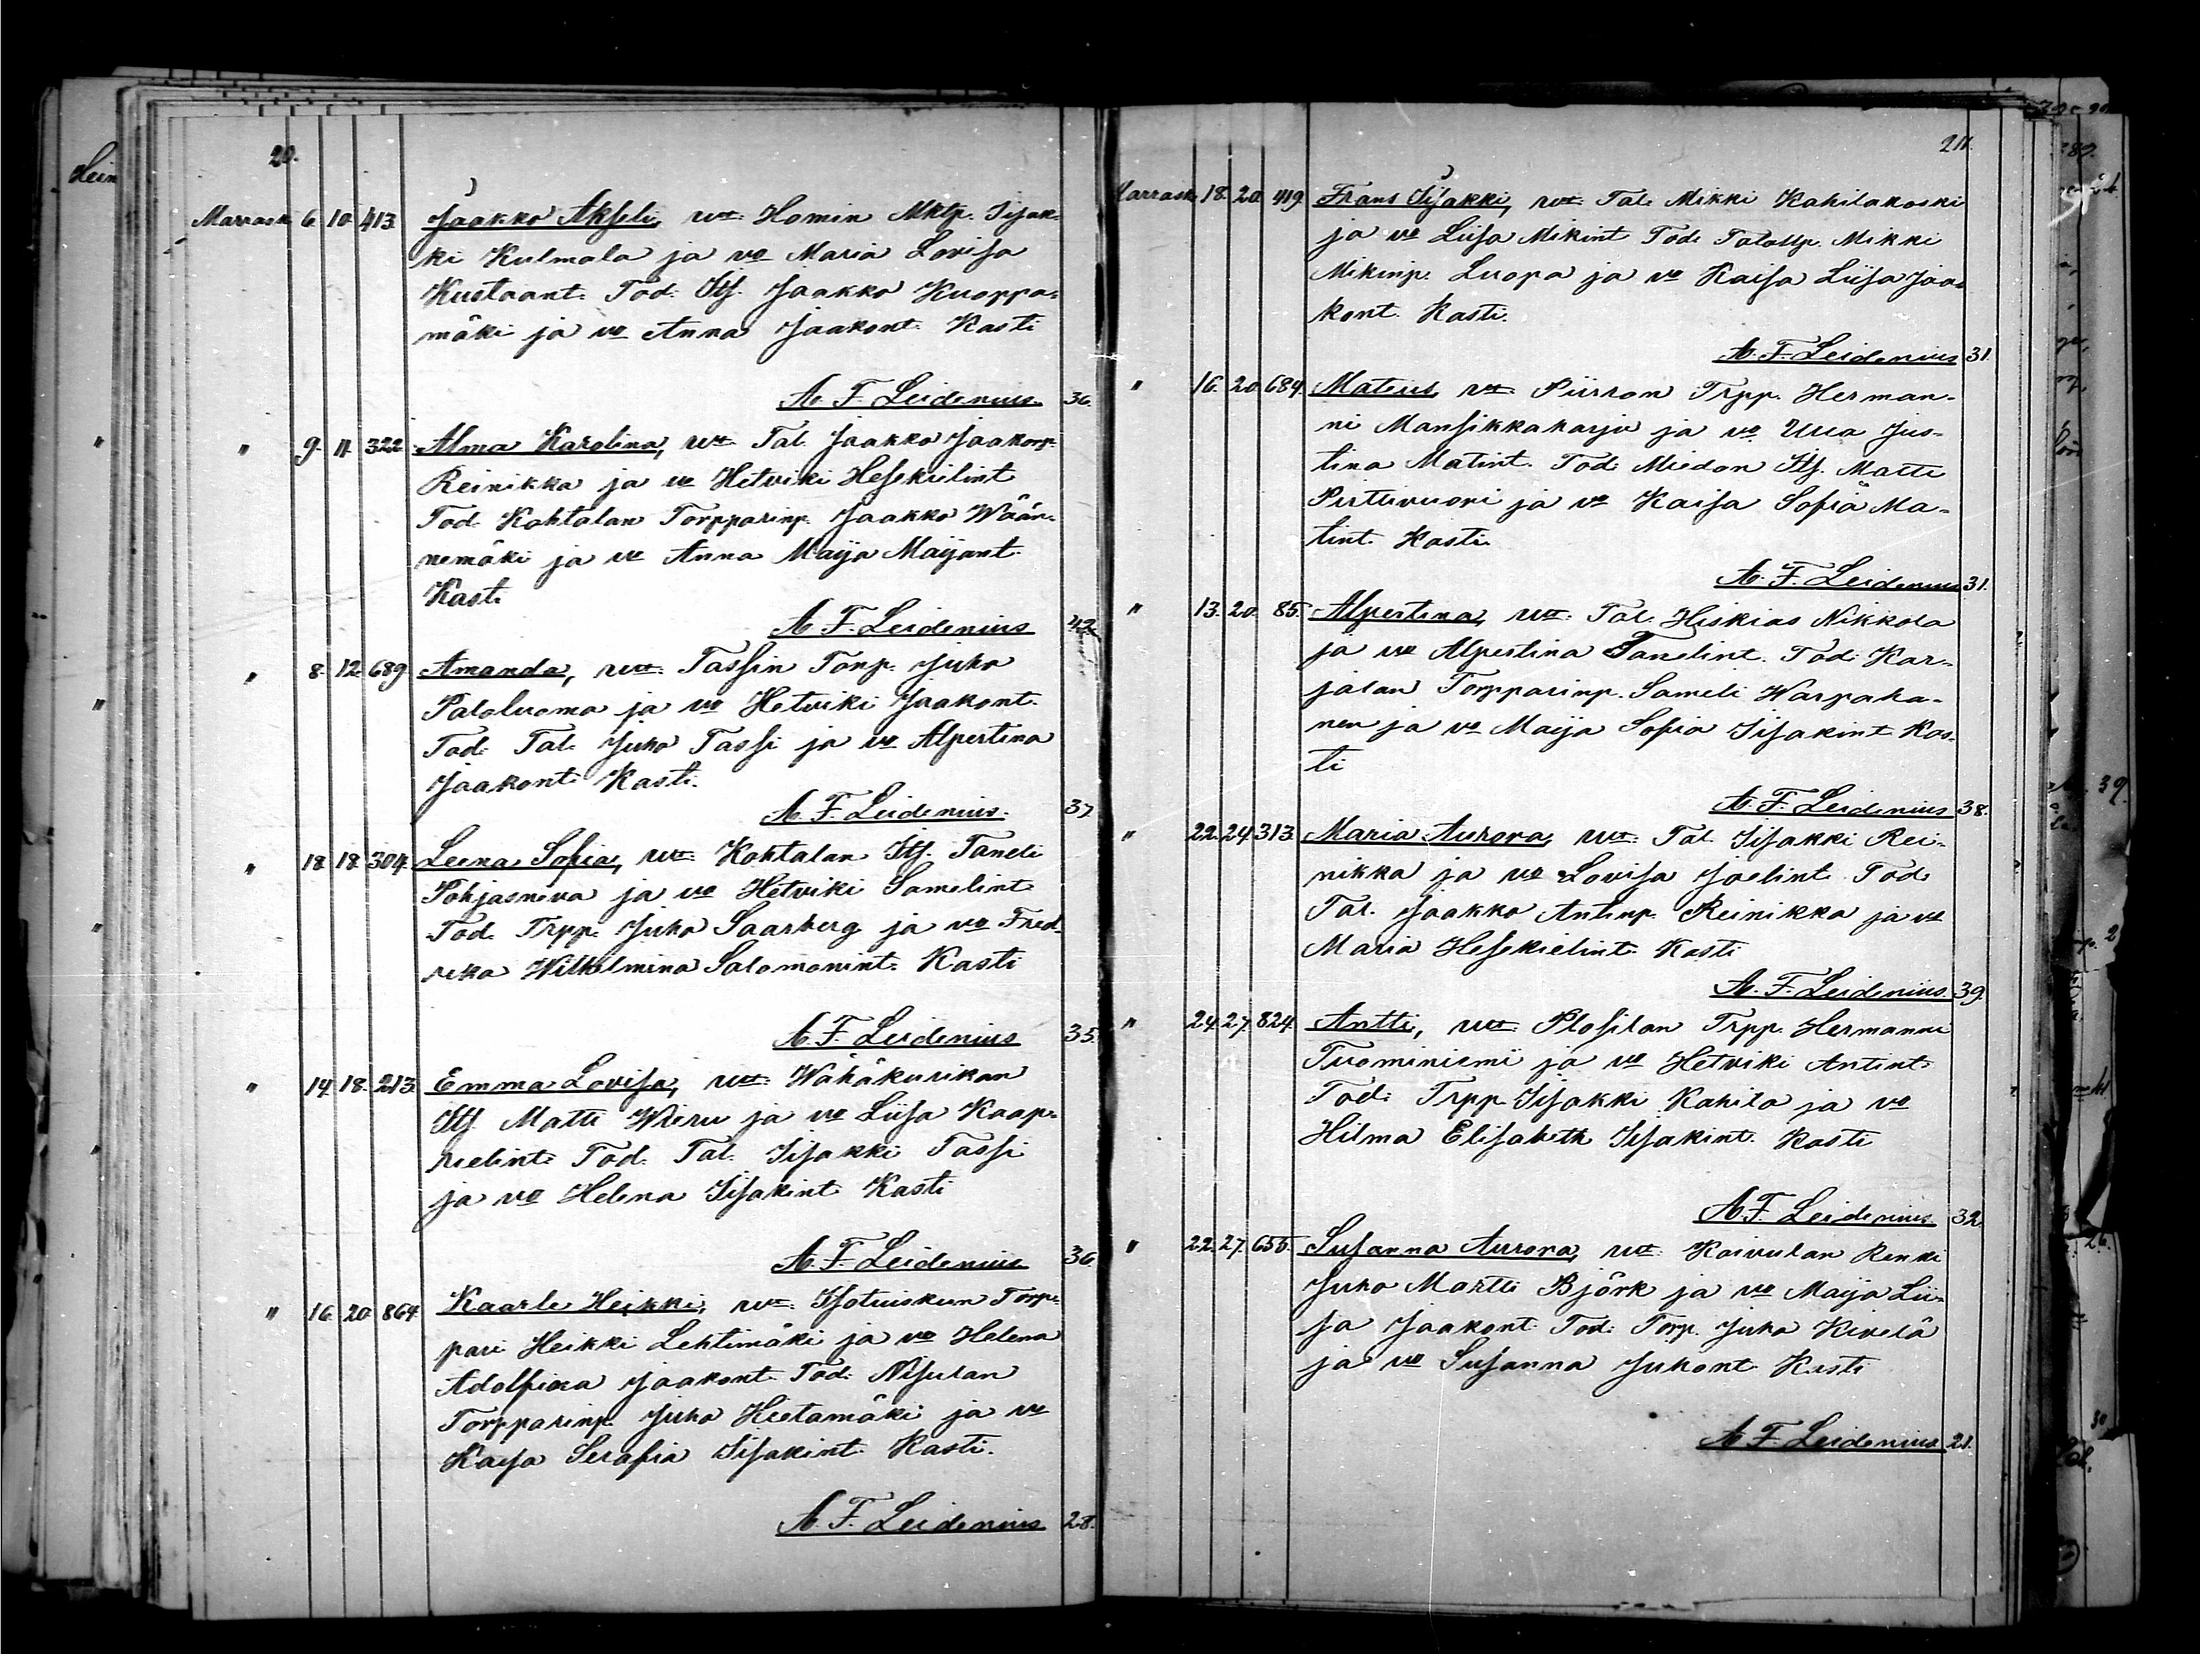 20.
Marrask. 6. 10. 413. Jaakko Akseli, vvt: Homin Mktp. Iisak-
ki Kulmala ja vo Maria Lovisa
Kustaant. Tod. Its. Jaakko Kuoppa-
mäki ja vo Anna Jaakont. Kasti
A. F. Leidenius. 36.
" 9. 11. 322. Alma Karolina, vvt: Tal. Jaakko Jaakonp.
Reinikka ja vo Hetviki Hesekielint
Tod. Kohtalan Torpparinp. Jaakko Wään-
nemäki ja vo Anna Maija Maijant.
Kasti
A. F. Leidenius 42.
" 8. 12. 689. Amanda, vvt: Tassin Torp. Juho
Paloluoma ja vo Hetviki Jaakont.
Tod. Tal. Juho Tassi ja vo Alpertina
Jaakont. Kasti.
A. F. Leidenius. 37.
" 18. 18. 304. Leena Sofia, vvt: Kohtalan Its. Taneli
Pohjasneva ja vo Hetviki Samelint.
Tod. Trpp. Juho Saarberg ja vo Fred-
rika Wilhelmina Salomonint. Kasti
A. F. Leidenius 35.
" 14. 18. 213. Emma Lovisa, vvt: Wähäkurikan
Its. Matti Wieru ja vo Liisa Kaap-
rielint. Tod. Tal. Iisakki Tassi
ja vo Helena Iisakint. Kasti
A. F. Leidenius 36.
" 16. 20. 864. Kaarle Heikki, vvt: Isotuiskun Torp-
pari Heikki Lehtimäki ja vo Helena
Adolfina Jaakont. Tod. Nisulan
Torpparinp. Juho Hietamäki ja vo
Kaisa Serafia Iisakint. Kasti.
A. F. Leidenius 28.
21.
Marrask. 18. 20. 419. Frans Iisakki, vvt: Tal. Mikki Kahilakoski
ja vo Liisa Mikint Tod. Talollp. Mikki
Mikinp. Luopa ja vo Kaisa Liisa Jaa-
kont. Kasti.
A. F. Leidenius 31.
" 16. 20. 684. Mateus, vvt: Piirron Trpp. Herman-
ni Mansikkaharju ja vo Ulla Jus-
tina Matint. Tod. Miedon Its. Matti
Pirttivuori ja vo Kaisa Sofia Ma-
tint. Kasti.
A. F. Leidenius 31.
" 13. 20. 85. Alpertina, vvt: Tal. Hiskias Nikkola
ja vo Alpertina Tanelint. Tod. Kar-
jalan Torpparinp. Sameli Warpaha-
nen ja vo Maija Sofia Iisakint Kas-
ti
A. F. Leidenius 38.
" 22. 24. 313. Maria Aurora, vvt: Tal. Iisakki Rei-
nikka ja vo Lovisa Joelint. Tod.
Tal. Jaakko Antinp. Reinikka ja vo
Maria Hesekielint. Kasti
A. F. Leidenius. 39.
" 24. 27. 824. Antti, vvt: Plosilan Trpp. Hermanni
Tuominiemi ja vo Hetviki Antint.
Tod. Trpp. Iisakki Kahila ja vo
Hilma Elisabeth Iisakint. Kasti
A. F. Leidenius 32.
" 22. 27. 655. Susanna Aurora, vvt: Koivulan Renki
Juho Martti Björk ja vo Maija Lii-
sa Jaakont. Tod. Torp. Juho Kivelä
ja vo Susanna Juhont. Kasti
A. F. Leidenius 21.